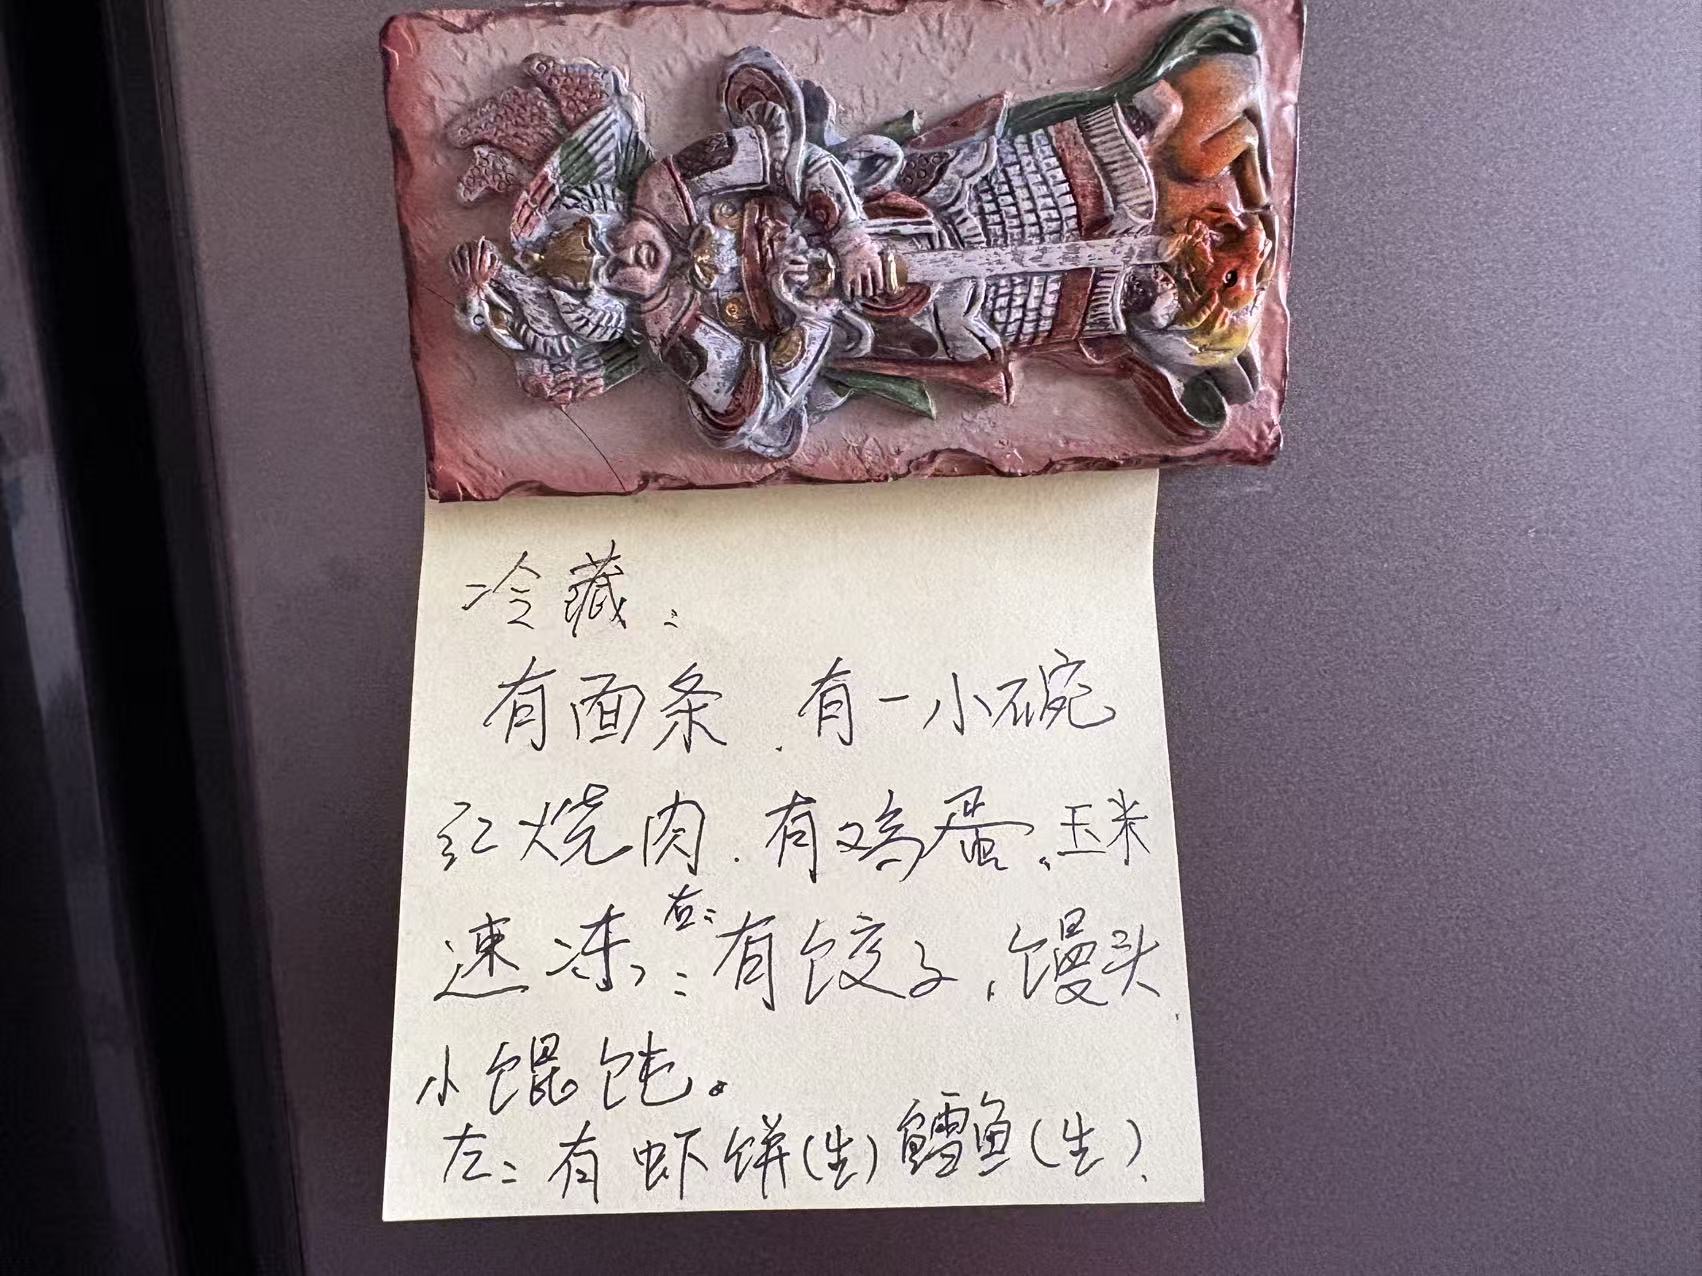 冷藏:
有面条.有一小碗
红烧肉.有鸡蛋、玉米
速冻右::有饺子,馒头,
小馄饨。
左:有虾饼(生)鳕鱼(生).